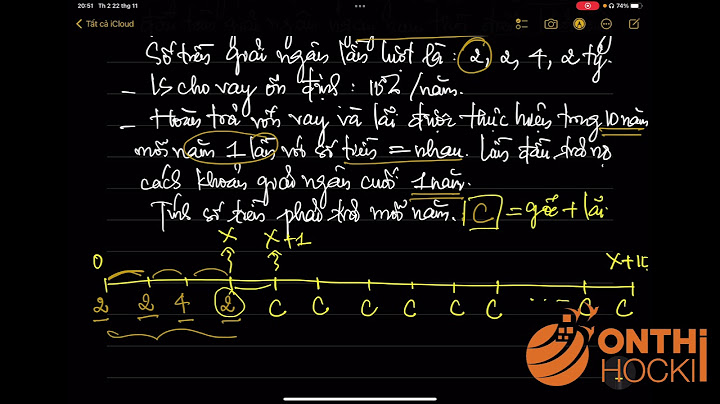 20:51 Th 2 22 thg 11
74%
Tất cả iCloud
Số tiền giải ngân lần lượt là : 2, 2, 4, 2 tỷ.
- LS cho vay ổn định : 10%/năm.
- Hoàn trả vốn vay và lãi được thực hiện trong 10 năm
mỗi năm 1 lần với số tiền = nhau. Lần đầu trả nợ
cách khoản giải ngân cuối 1 năm.
Tính số tiền phải trả mỗi năm. C = gốc + lãi
0 X X+1 X+10
2 2 4 2 C C C C C C ... C C
ONTHi
HOCKI